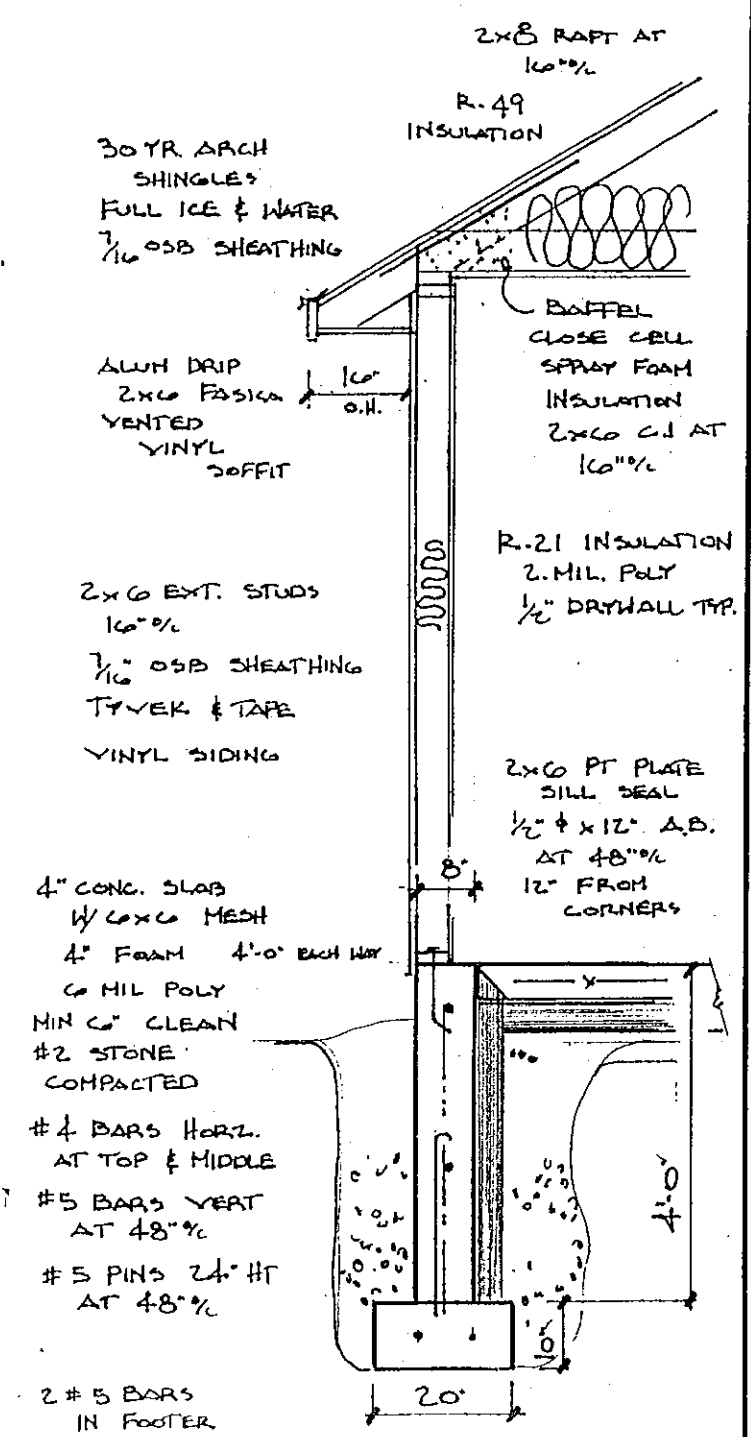 2x8 RAFT AT
16" o/c
R-49
INSULATION
30 YR. ARCH
SHINGLES
FULL ICE & WATER
7/16 OSB SHEATHING
BAFFEL
CLOSE CELL
SPRAY FOAM
INSULATION
2x6 C.J AT
16" o/c
ALUM DRIP
2x6 FASICA
VENTED
VINYL
SOFFIT
16"
O.H.
R-21 INSULATION
2. MIL. POLY
1/2" DRYWALL TYP.
2x6 EXT. STUDS
16" o/c
7/16" OSB SHEATHING
TYVEK & TAPE
VINYL SIDING
2x6 PT PLATE
SILL SEAL
1/2" ϕ x 12" A.B.
AT 48" o/c
12" FROM
CORNERS
8"
4" CONC. SLAB
W/ 6x6 MESH
4" FOAM 4'-0" EACH WAY
6 MIL POLY
MIN 6" CLEAN
#2 STONE
COMPACTED
#4 BARS HORZ.
AT TOP & MIDDLE
#5 BARS VERT
AT 48" o/c
#5 PINS 24" HT
AT 48" o/c
2 #5 BARS
IN FOOTER
4'-0"
10"
20"